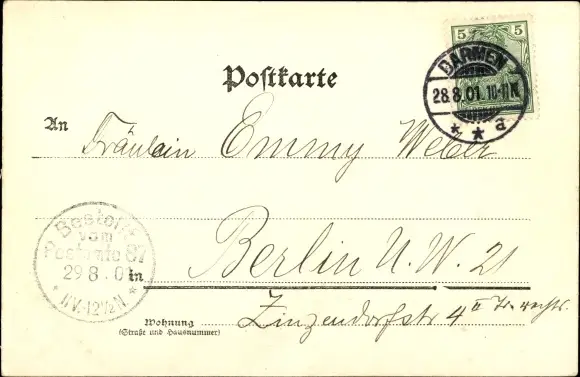 5 5
BARMEN
28.8.01. 10-11N.
* * a
Postkarte
An Fräulein Emmy Weber
Bestellt
vom
Postamte 87
29 8. 0
* 11V.-12½N *
in Berlin N.W. 21
Wohnung
(Straße und Hausnummer)
Zinzendorfstr 4 II Tr. rechts.